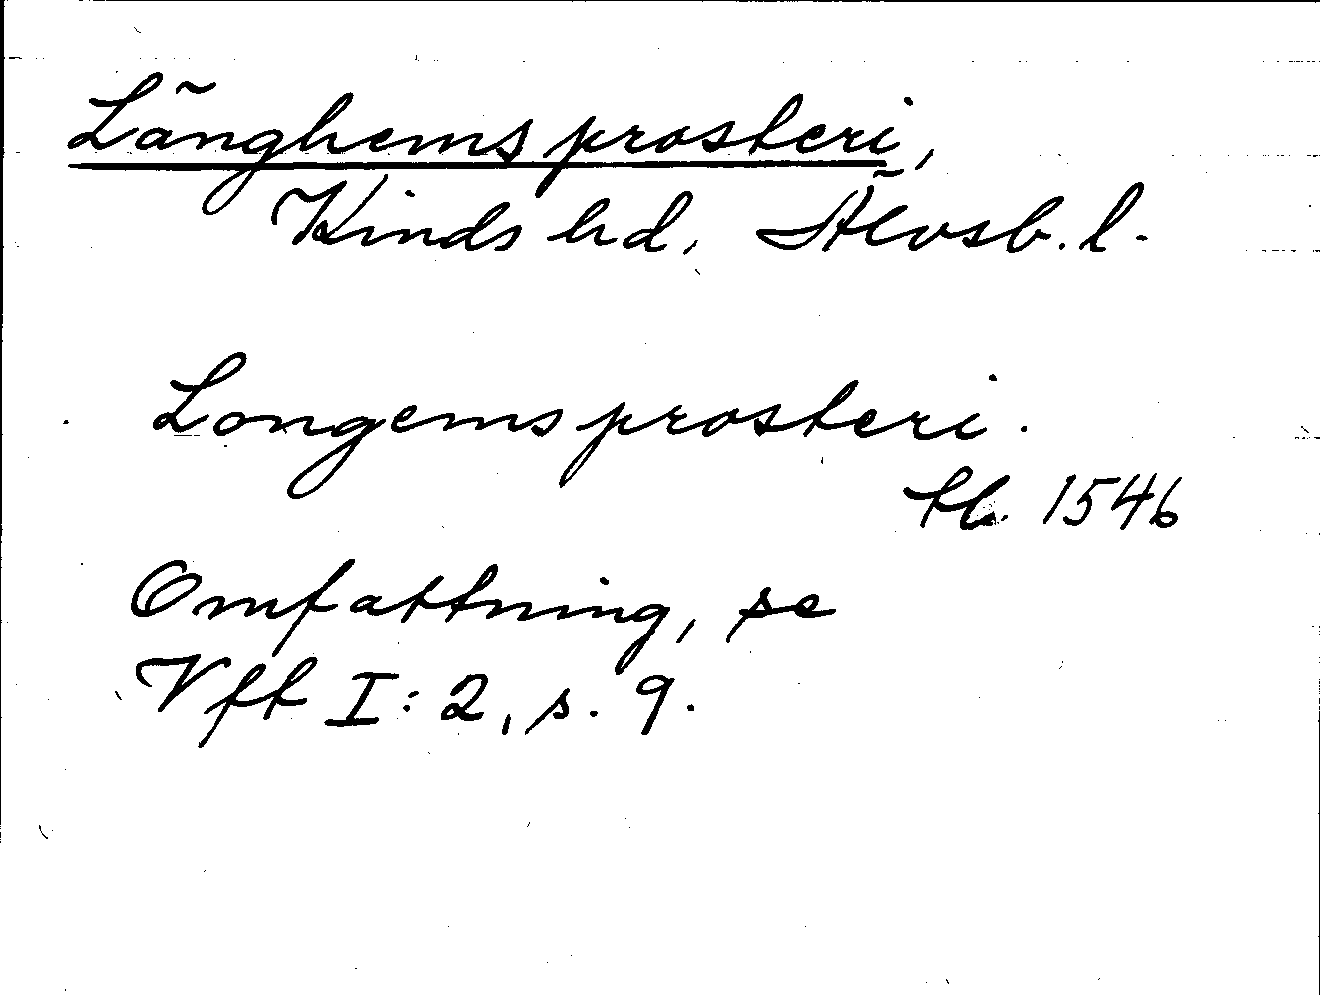 Länghems prosteri,
Kinds hd, Älvsb. l.
Longems prosteri.
tl. 1546
Omfattning, se
Vft I: 2, s. 9.